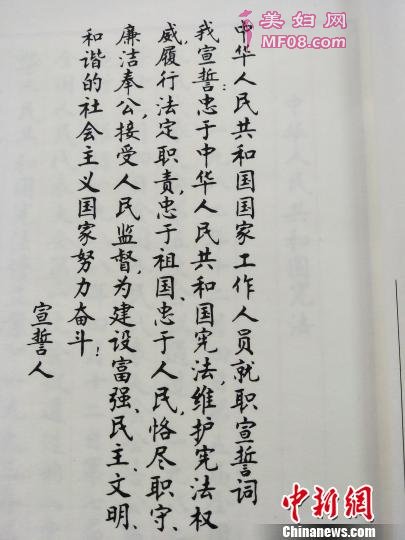 美妇网
MF08.com
中华人民共和国国家工作人员就职宣誓词
我宣誓：忠于中华人民共和国宪法，维护宪法权
威，履行法定职责，忠于祖国、忠于人民，恪尽职守、
廉洁奉公，接受人民监督，为建设富强、民主、文明、
和谐的社会主义国家努力奋斗！
宣誓人
中新网
Chinanews.com